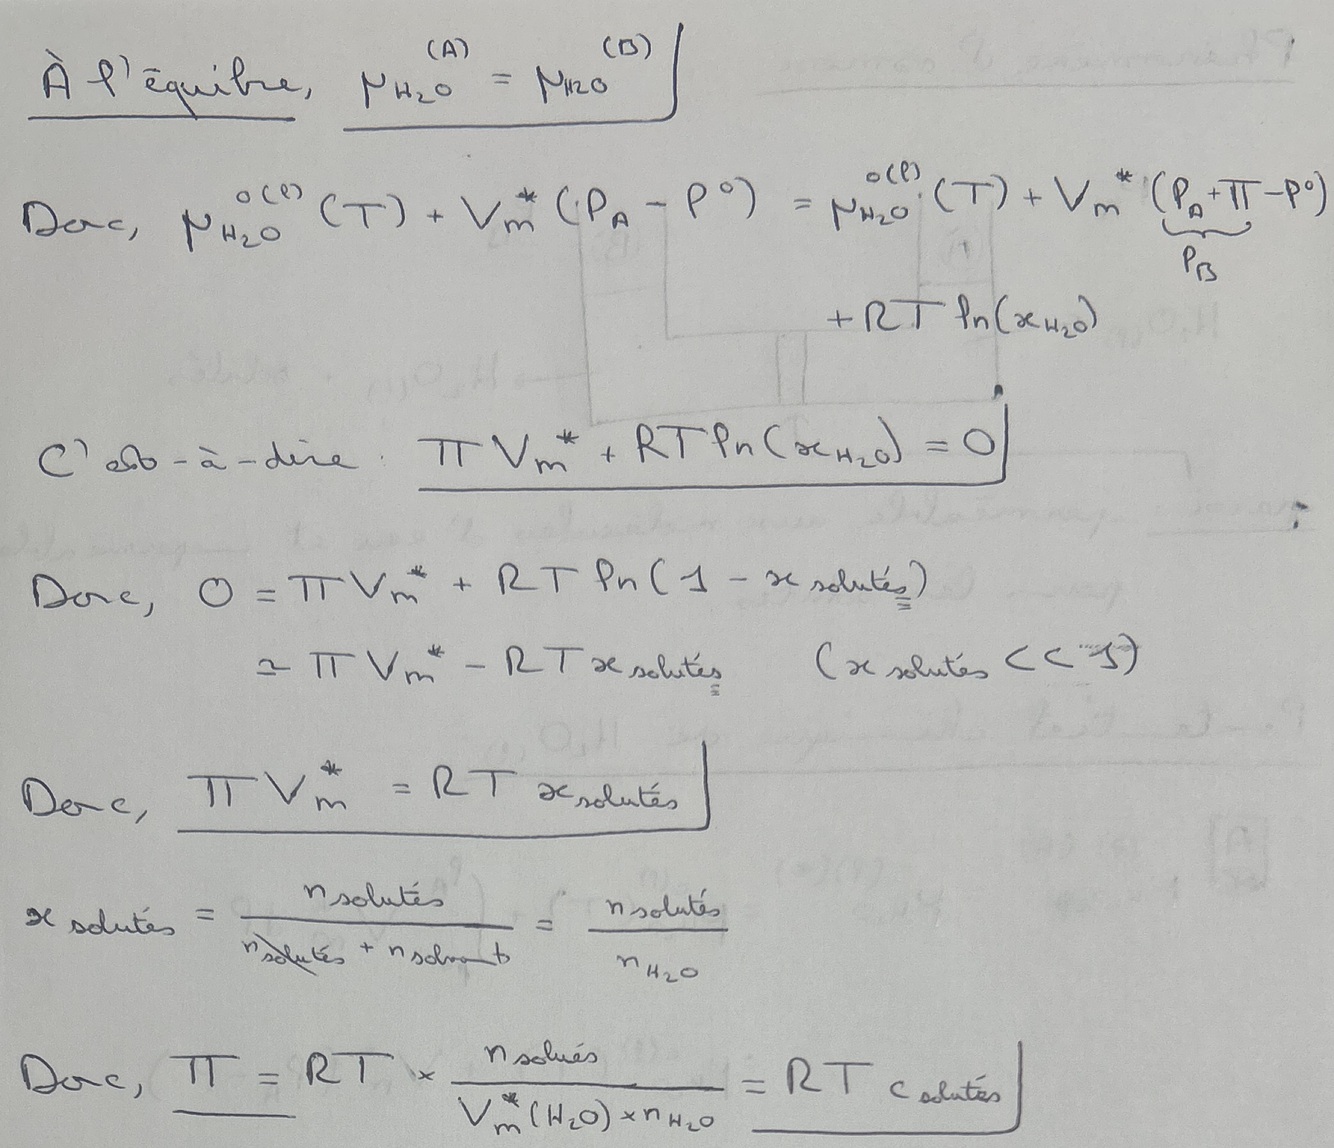 À l'équibre, μ_H₂O^(A) = μ_H₂O^(B)
Donc, μ_H₂O^o(l) (T) + V_m^* (P_A - P°) = μ_H₂O^o(l) (T) + V_m^* (P_A + Π - P°)
P_B
+ RT ln(x_H₂O)
C'est-à-dire : Π V_m^* + RT ln(x_H₂O) = 0
Donc, 0 = Π V_m^* + RT ln(1 - x solutés)
≃ Π V_m^* - RT x solutés (x solutés << 1)
Donc, Π V_m^* = RT x solutés
x solutés = n solutés / (n solutés + n solvant) = n solutés / n_H₂O
Donc, Π = RT × n solués / (V_m^*(H₂O) × n_H₂O) = RT c solutés